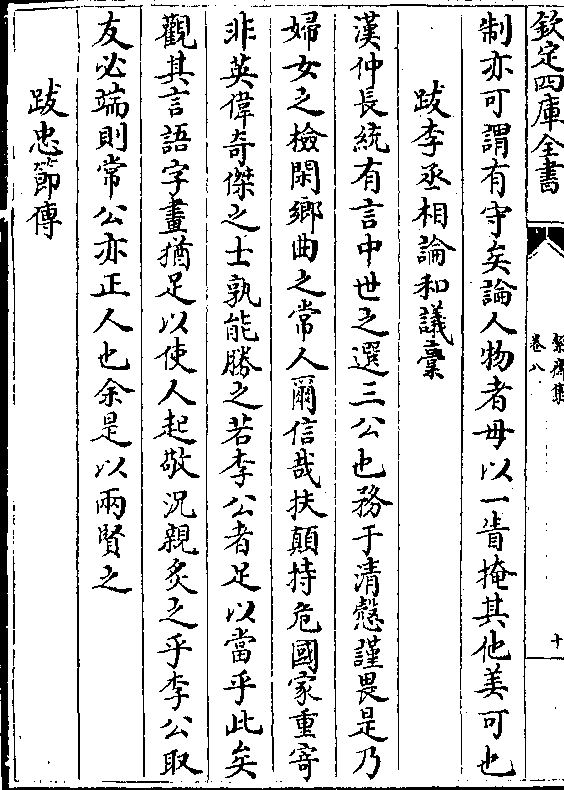 欽定四庫全書
絜齋集
卷八
十
制亦可謂有守矣論人物者毋以一眚掩其他美可也
跋李丞相論和議藁
漢仲長統有言中世之選三公也務于清慤謹畏是乃
婦女之檢閑鄉曲之常人爾信哉扶顛持危國家重寄
非英偉奇傑之士孰能勝之若李公者足以當乎此矣
觀其言語字畫猶足以使人起敬況親炙之乎李公取
友必端則常公亦正人也余是以兩賢之
跋忠節傳